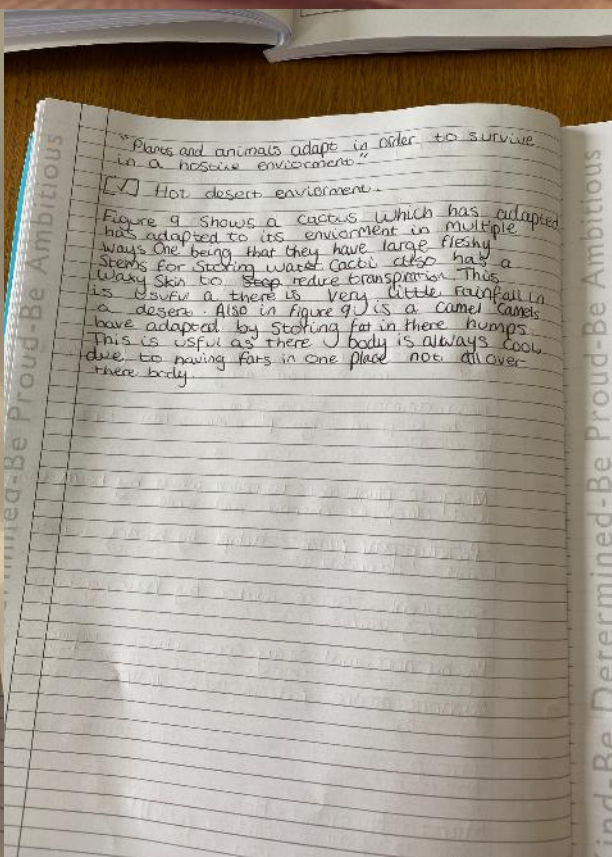 "Plants and animals adapt in order to survive
in a hostive enviorment."
[✓] Hot desert enviorment.
Figure 9 shows a cactus which has adapted
has adapted to its enviorment in multiple
ways One being that they have large fleshy
Stems for storing water Cacti also has a
Waxy Skin to stop reduce transpiration This
is usuful a there is very little rainfall in
a desert. Also in figure 9 is a camel Camels
have adapted by storing fat in there humps.
This is usful as there body is always cool
due to having fats in one place not all over
there body.
Be Proud-Be Ambitious
Kind-Be Determined-Be Proud-Be Ambitious